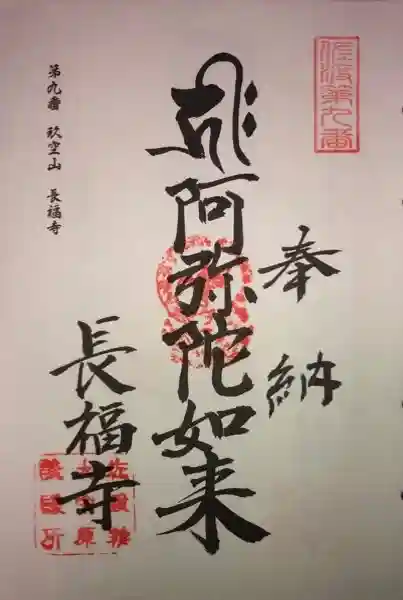 佐渡第九番
奉納
阿弥陀如来
長福寺
第九番 玖空山 長福寺